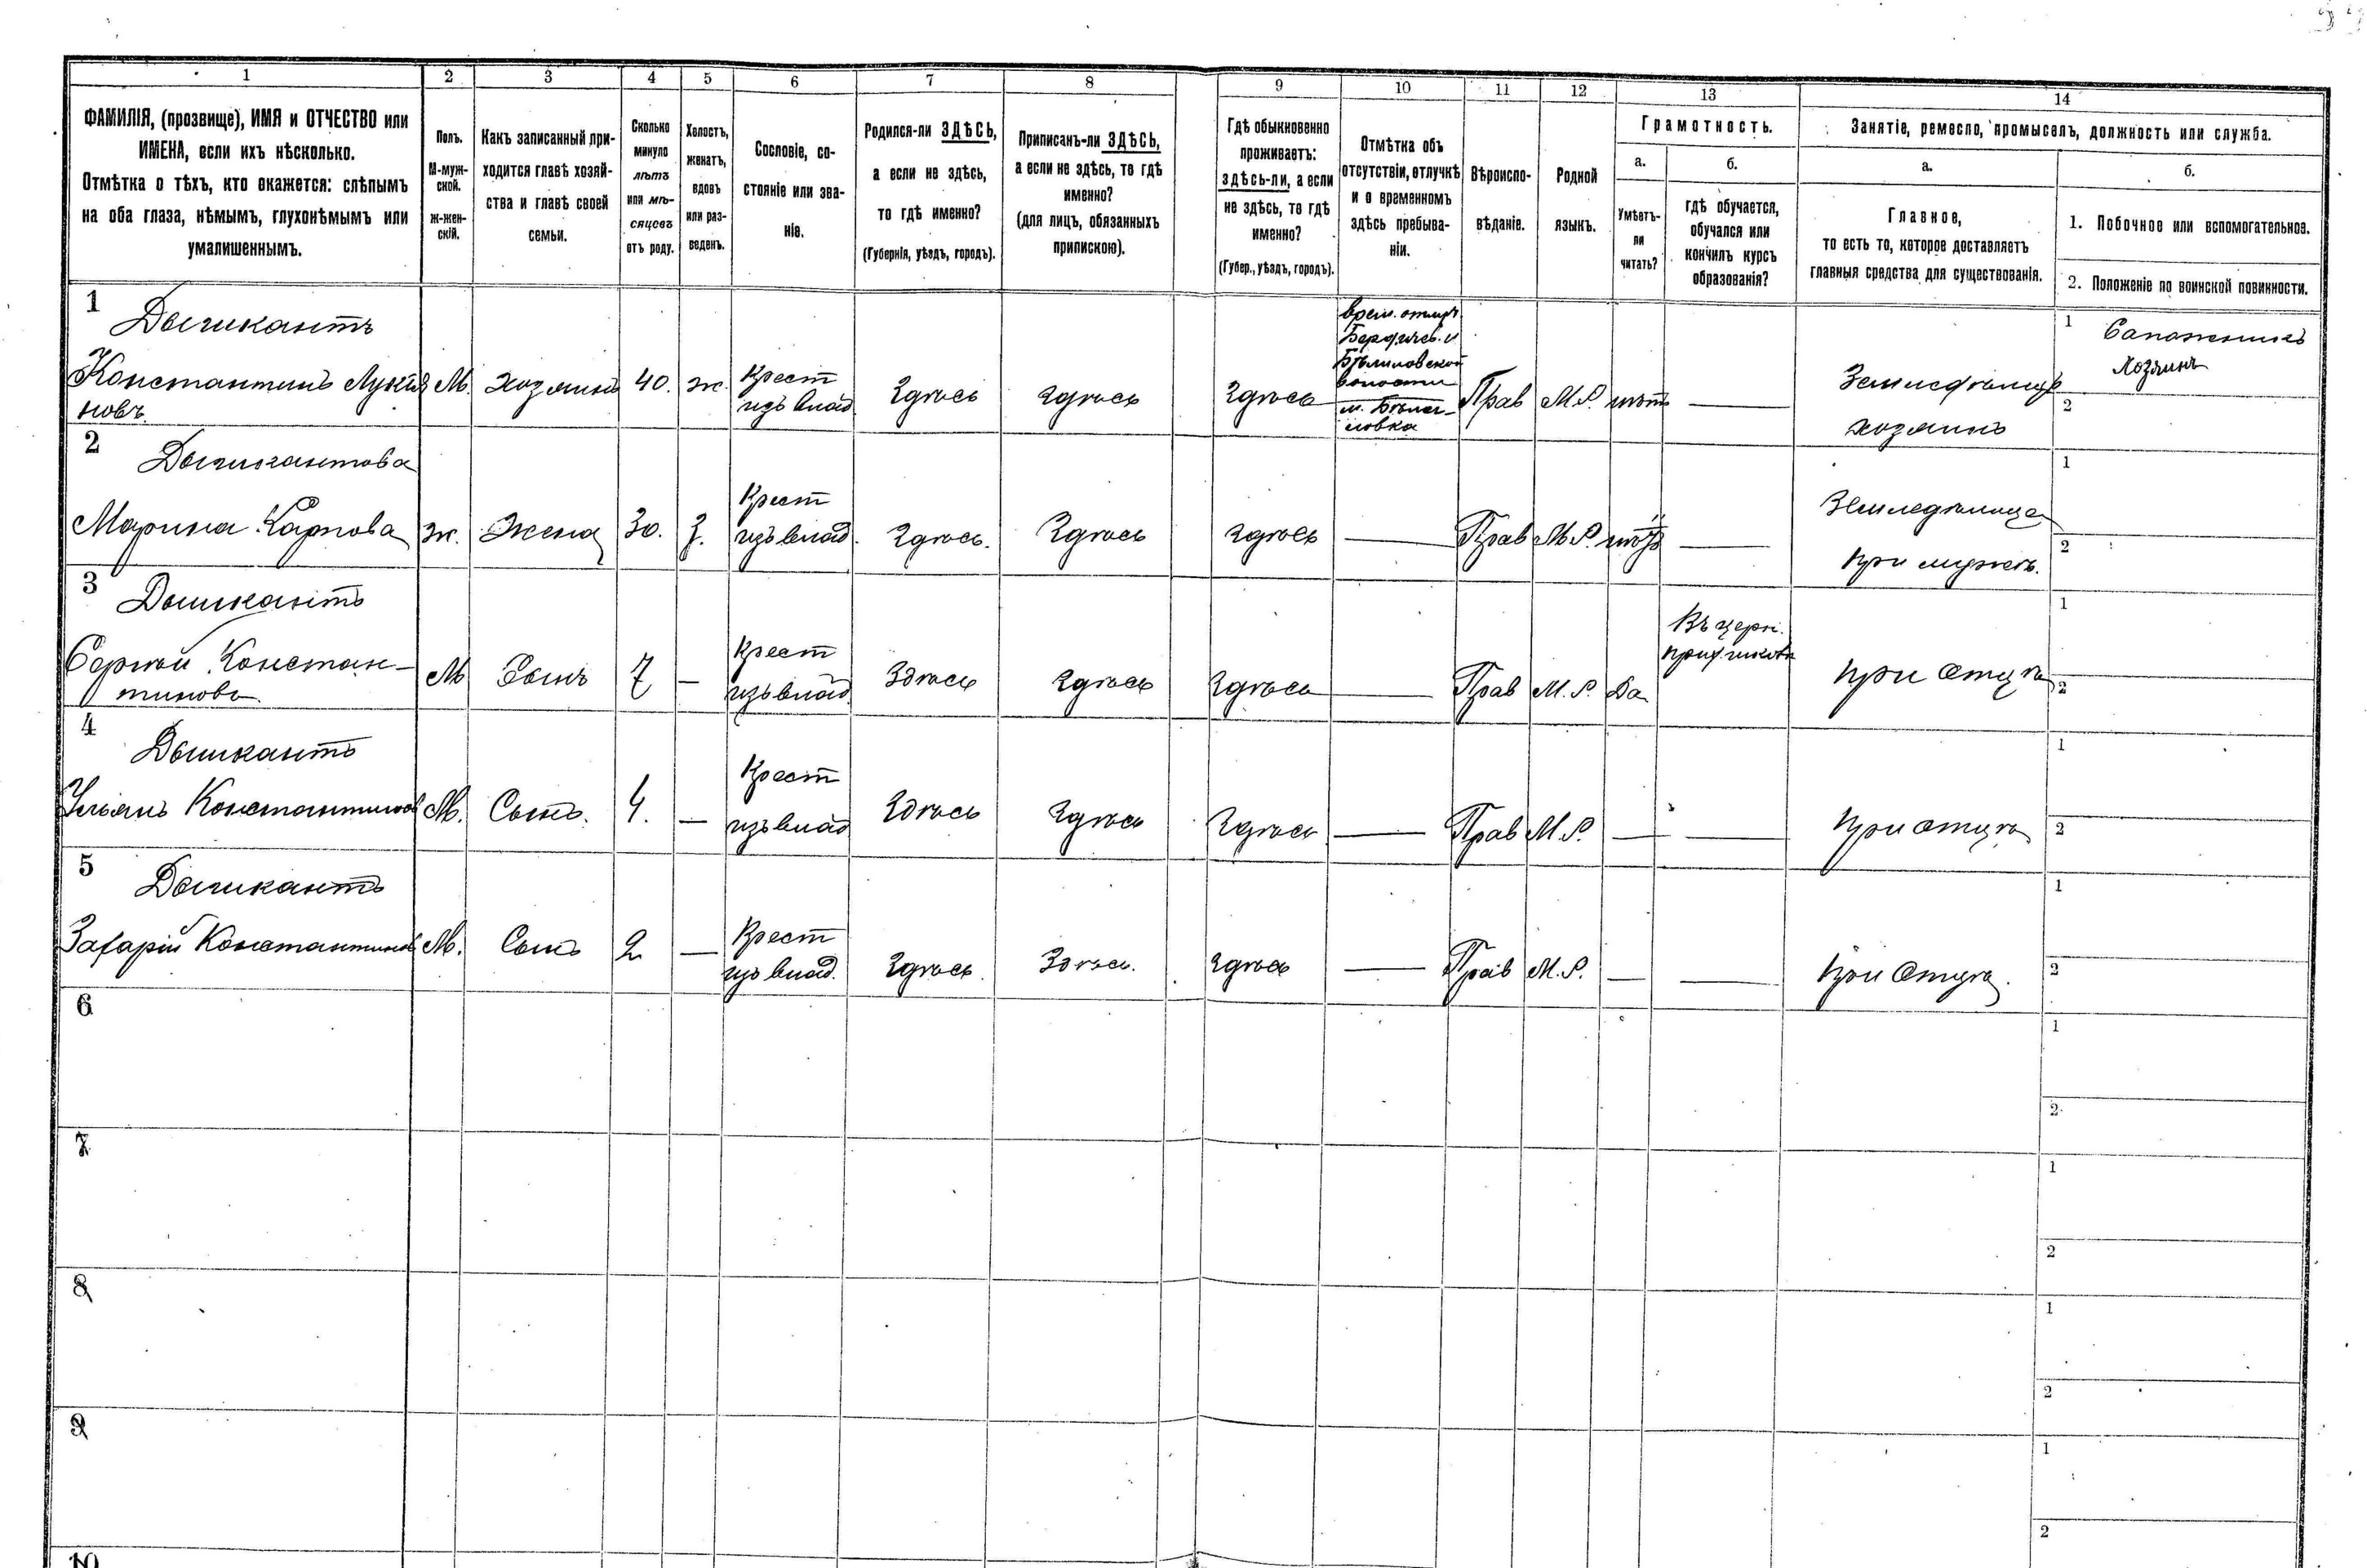 1
2
3
4
5
6
7
8
9
10
11
12
13
14
ФАМИЛІЯ, (прозвище), ИМЯ и ОТЧЕСТВО или
ИМЕНА, если ихъ нѣсколько.
Отмѣтка о тѣхъ, кто окажется: слѣпымъ
на оба глаза, нѣмымъ, глухонѣмымъ или
умалишеннымъ.
Полъ.
М-муж-
ской.
ж-жен-
скій.
Какъ записанный при-
ходится главѣ хозяй-
ства и главѣ своей
семьи.
Сколько
минуло
лѣтъ
или мѣ-
сяцевъ
отъ роду.
Холостъ,
женатъ,
вдовъ
или раз-
веденъ.
Сословіе, со-
стояніе или зва-
ніе.
Родился-ли ЗДѢСЬ,
а если не здѣсь,
то гдѣ именно?
(Губернія, уѣздъ, городъ).
Приписанъ-ли ЗДѢСЬ,
а если не здѣсь, то гдѣ
именно?
(для лицъ, обязанныхъ
припискою).
Гдѣ обыкновенно
проживаетъ:
здѣсь-ли, а если
не здѣсь, то гдѣ
именно?
(Губер., уѣздъ, городъ).
Отмѣтка объ
отсутствіи, отлучкѣ
и о временномъ
здѣсь пребыва-
ніи.
Вѣроиспо-
вѣданіе.
Родной
языкъ.
Грамотность.
а.
Умѣетъ-
ли
читать?
б.
гдѣ обучается,
обучался или
кончилъ курсъ
образованія?
Занятіе, ремесло, промыселъ, должность или служба.
а.
Главное,
то есть то, которое доставляетъ
главныя средства для существованія.
б.
1. Побочное или вспомогательное.
2. Положеніе по воинской повинности.
1
Дышкантъ
Константинъ Лукія
новъ
М.
хозяинъ
40.
ж.
Крест
изъ влад
Здѣсь
здѣсь
Здѣсь
Бердичев. у
волости
Прав
М.Р.
нѣтъ
—
Земледѣлецъ
хозяинъ
1
Сапожникъ
хозяинъ
2
2
Дышкантова
Марина Карпова
ж.
Жена
30.
З.
Крест
изъ влад.
Здѣсь.
Здѣсь
здѣсь
—
Прав
М.Р.
нѣтъ
—
Земледѣлица
при мужѣ.
1
2
3
Дышкантъ
Сергѣй Констан-
тиновъ
М
Сынъ
7
—
Крест
изъ влад.
Здѣсь
здѣсь
Здѣсь
—
Прав
М.Р.
Да
Въ церк.
прих. школѣ
при отцѣ
1
2
4
Дышкантъ
Ульянъ Константинов
М.
Сынъ.
4.
—
Крест
изъ влад
Здѣсь
Здѣсь
Здѣсь
—
Прав
М.Р.
—
—
при отцѣ
1
2
5
Дышкантъ
Захарій Константинов
М.
Сынъ
2
—
Крест
изъ влад.
Здѣсь.
Здѣсь.
здѣсь
—
Прав
М.Р.
—
—
при Отцѣ.
1
2
6
1
2
7
1
2
8
1
2
9
1
2
10